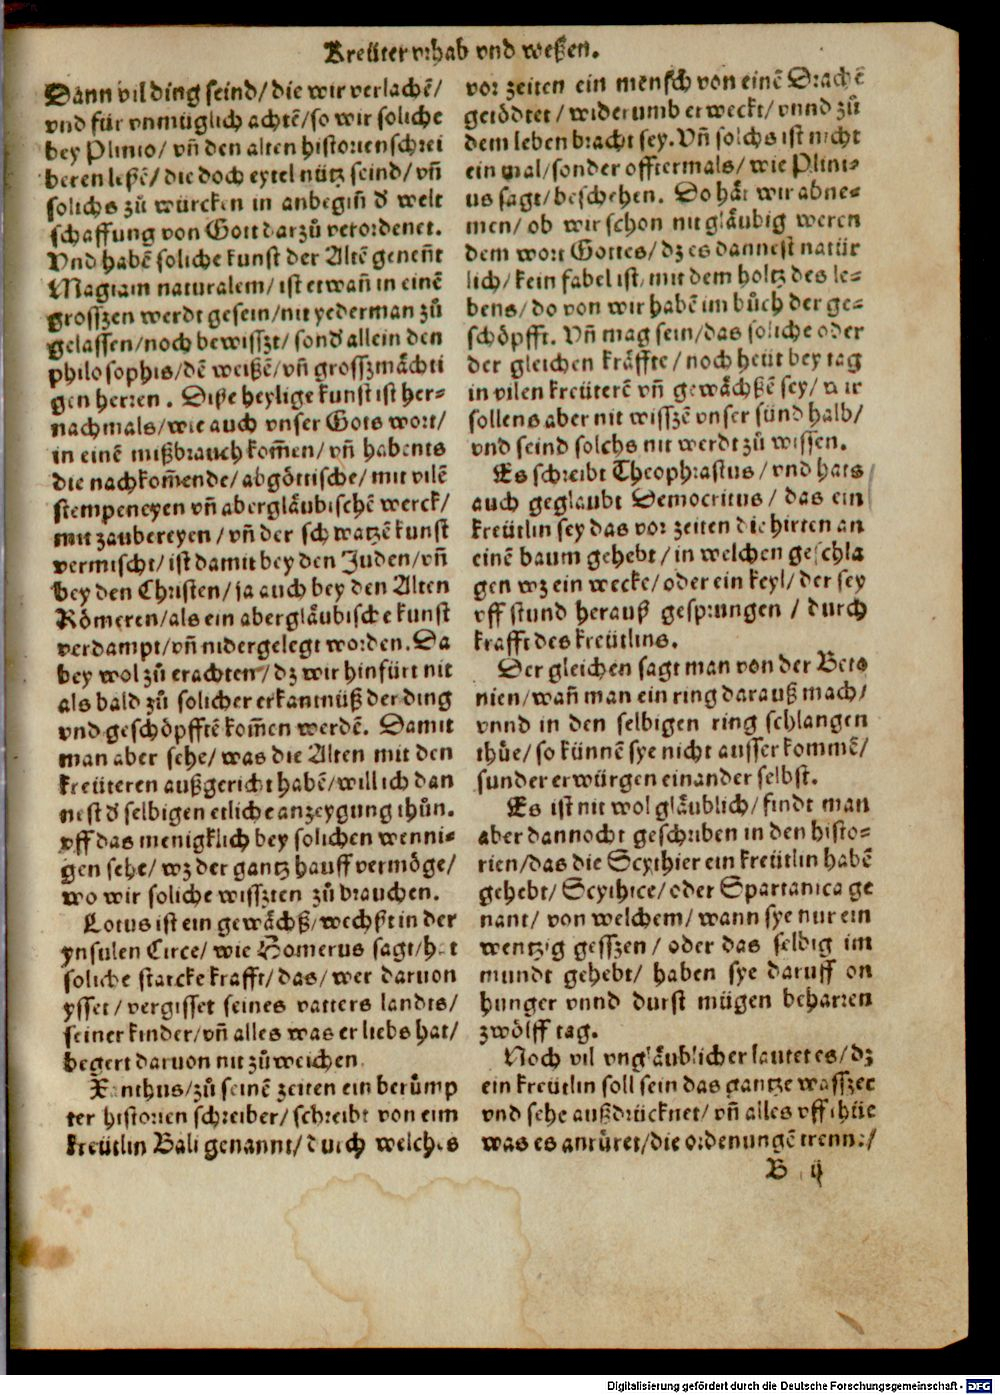 Kreüter vrhab vnd weßen.
Dann vil ding seind/ die wir verlachē/
vnd für vnmüglich achtē/so wir soliche
bey Plinio/ vn̄ den alten historienschrei
beren leßē/ die doch eytel nütz seind/ vn̄
solichs zů würcken in anbegiñ d̄ welt
schaffung von Gott darzů verordenet.
Vnd habē soliche kunst der Altē geneñt
Magiam naturalem/ ist etwañ in einē
grosszen werdt gesein/nit yederman zů
gelassen/noch bewisszt/ sond̄ allein den
philosophis/dē weißē/vn̄ grosszmächti
gen herren. Diße heylige kunst ist her-
nachmals/wie auch vnser Gots wort/
in einē mißbrauch kom̄en/ vn̄ habents
die nachkom̄ende/ abgöttische/ mit vilē
stempeneyen vn̄ abergläubischē werck/
mit zaubereyen/ vn̄ der schwatzē kunst
vermischt/ ist damit bey den Juden/vn̄
bey den Christen/ ja auch bey den Alten
Römeren/als ein abergläubische kunst
verdampt/vn̄ nidergelegt worden. Da
bey wol zů erachten/ dz wir hinfürt nit
als bald zů solicher erkantnüß der ding
vnd geschöpfftē kom̄en werdē. Damit
man aber sehe/ was die Alten mit den
kreüteren außgericht habē/will ich dan
nest d̄ selbigen etliche anzeygung thůn.
vff das menigklich bey solichen wenni-
gen sehe/ wz der gantz hauff vermöge/
wo wir soliche wisszten zů brauchen.
Lotus ist ein gewächß/wechßt in der
ynsulen Circe/ wie Homerus sagt/hat
soliche starcke krafft/das/ wer daruon
ysset/ vergisset seines vatters landts/
seiner kinder/vn̄ alles was er liebs hat/
begert daruon nit zů weichen.
Xanthus/zů seinē zeiten ein berůmp
ter historien schreiber/ schreibt von eim
kreütlin Bali genannt/durch welches
vor zeiten ein mensch von einē Drachē
getödtet/ widerumb erweckt/ vnnd zů
dem leben bracht sey. Vn̄ solchs ist nicht
ein mal/sonder offtermals/ wie Plini-
us sagt/ beschehen. Do här wir abne-
men/ ob wir schon nit gläubig weren
dem wort Gottes/ dz es dannest natür
lich/ kein fabel ist/ mit dem holtz des le-
bens/ do von wir habē im bůch der ge-
schöpfft. Vn̄ mag sein/das soliche oder
der gleichen kräffte/ noch heüt bey tag
in vilen kreüterē vn̄ gewächßē sey/ wir
sollens aber nit wisszē vnser sünd halb/
vnd seind solchs nit werdt zů wissen.
Es schreibt Theophrastus/ vnd hats
auch geglaubt Democritus/ das ein
kreütlin sey das vor zeiten die hirten an
einē baum gehebt/ in welchen geschla
gen wz ein wecke/ oder ein keyl/ der sey
vff stund herauß gesprungen/ durch
krafft des kreütlins.
Der gleichen sagt man von der Beto
nien/wañ man ein ring darauß mach/
vnnd in den selbigen ring schlangen
thüe/ so künnē sye nicht ausser kommē/
sunder erwürgen einander selbst.
Es ist nit wol gläublich/ findt man
aber dannocht geschriben in den histo-
rien/das die Scythier ein kreütlin habē
gehebt/ Scythice/ oder Spartanica ge
nant/ von welchem/ wann sye nur ein
wentzig gesszen/ oder das selbig im
mundt gehebt/ haben sye daruff on
hunger vnnd durst mügen beharren
zwölff tag.
Noch vil vngläublicher lautet es/ dz
ein kreütlin soll sein das gantze wasszer
vnd sehe außdrücknet/ vn̄ alles vff thüe
was es anrüret/die ordenungē trenne/
B ij
Digitalisierung gefördert durch die Deutsche Forschungsgemeinschaft - DFG